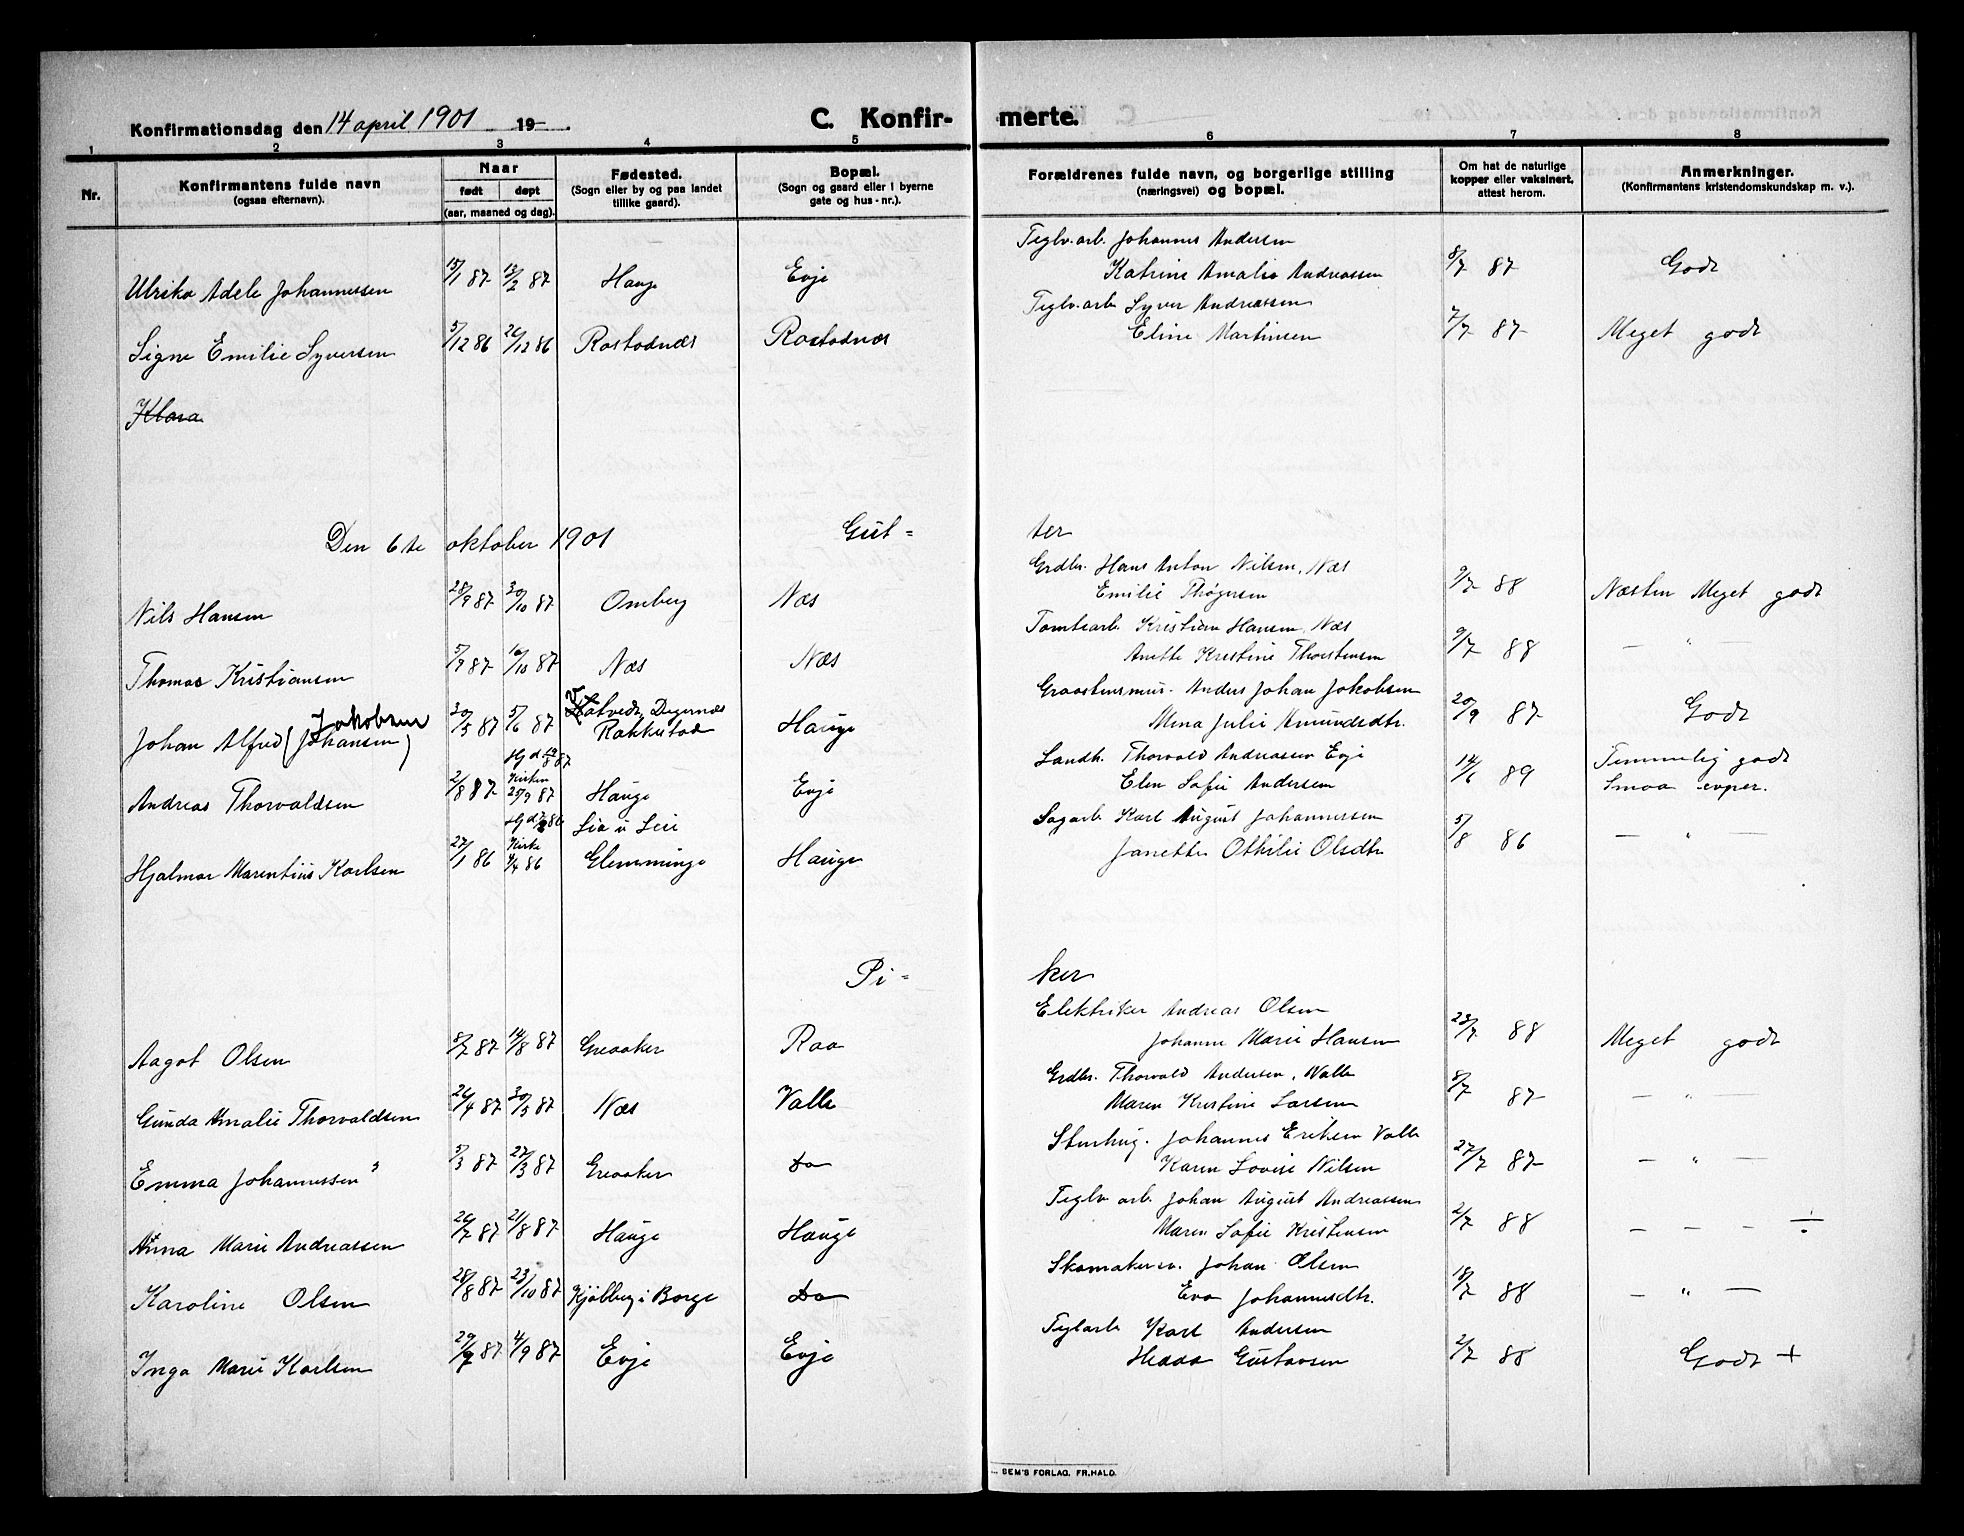 Konfirmationsdag den 14 april 1901 19
C. Konfirmerte.
1 2 3 4 5 6 7 8
Nr.
Konfirmantens fulde navn
(ogsaa efternavn).
Naar
født døpt
(aar, maaned og dag).
Fødested.
(Sogn eller by og paa landet
tillike gaard).
Bopæl.
(Sogn og gaard eller i byerne
gate og hus-nr.).
Forældrenes fulde navn, og borgerlige stilling
(næringsvei) og bopæl.
Om hat de naturlige
kopper eller vaksinert,
attest herom.
Anmerkninger.
(Konfirmantens kristendomskundskap m. v.).
Teglv.arb. Johannes Andersen
Ulrika Adele Johannessen 15/1 87 13/2 87 Hauge Evje Katrine Amalia Andreassen 8/7 87 Godt
Teglv.arb. Syver Andreassen
Signe Emilie Syversen 5/12 86 26/12 86 Rostadnæs Rostadnæs Eline Martinsen 7/7 87 Meget godt
Klara
Den 6te oktober 1901 Gut- ter
Grdbr. Hans Anton Nilsen, Næs
Nils Hansen 28/9 87 30/10 87 Omberg Næs Emilie Thøgersen 9/7 88 Næsten Meget godt
Tomtearb. Kristian Hansen, Næs
Thomas Kristiansen 5/9 87 16/10 87 Næs Næs Anette Kristine Thorstensen 9/7 88 — " —
Jakobsen Tatvedt, Degernæs Graastensmur. Anders Johan Jakobsen
Johan Alfred (Johansen) 30/3 87 5/6 87 Rakkestad Hauge Mena Julie Amundsdtr. 20/9 87 Godt
Hjd 87 Landh. Thorvald Andreassen Evje Temmelig godt
Andreas Thorvaldsen 2/8 87 Kirken 25/9 87 Hauge Evje Elen Sofie Andersen 14/6 89 Smaa evner.
Hjd 86 Lia i Leie Sagarb Karl August Johannessen
Hjalmar Marentius Karlsen 27/1 86 Kirke 4/4 86 Glemminge Hauge Janette Othilie Olsdtr 5/8 86 — " —
Pi- ker
Elektriker Andreas Olsen
Aagot Olsen 8/7 87 14/8 87 Greaaker Raa Johanne Marie Hansen 23/7 88 Meget godt
Grdbr. Thorvald Andersen, Valle
Gunda Amalie Thorvaldsen 26/4 87 30/5 87 Næs Valle Maren Kristine Larsen 8/7 87 — " —
Stenhug. Johannes Eriksen Valle
Emma Johannessen 5/3 87 27/3 87 Greaaker do Karen Lovise Nilsen 27/7 87 — " —
Teglv arb. Johan August Andreassen
Anna Marie Andreassen 26/7 87 21/8 87 Hauge Hauge Maren Sofie Kristensen 2/7 88 — — — ÷
Skomakersv. Johan Olsen
Karoline Olsen 28/8 87 23/10 87 Kjølberg i Borge do Eva Johannesdtr. 18/7 88 — " —
Teglarb Karl Andersen
Inga Marie Karlsen 29/7 87 4/9 87 Evje Evje Hedda Gustavsen 2/7 88 Godt +
SEM'S FORLAG. FR. HALD.